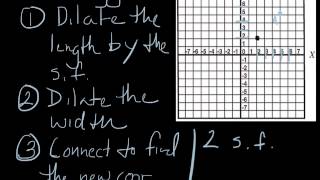 ① Dilate the
length by the
s.f.
② Dilate the
width
③ Connect to find
the new coor
2 s.f.
X
-7 -6 -5 -4 -3 -2 -1 0 1 2 3 4 5 6 7
5
4
3
2
1
-1
-2
-3
-4
-5
-6
-7